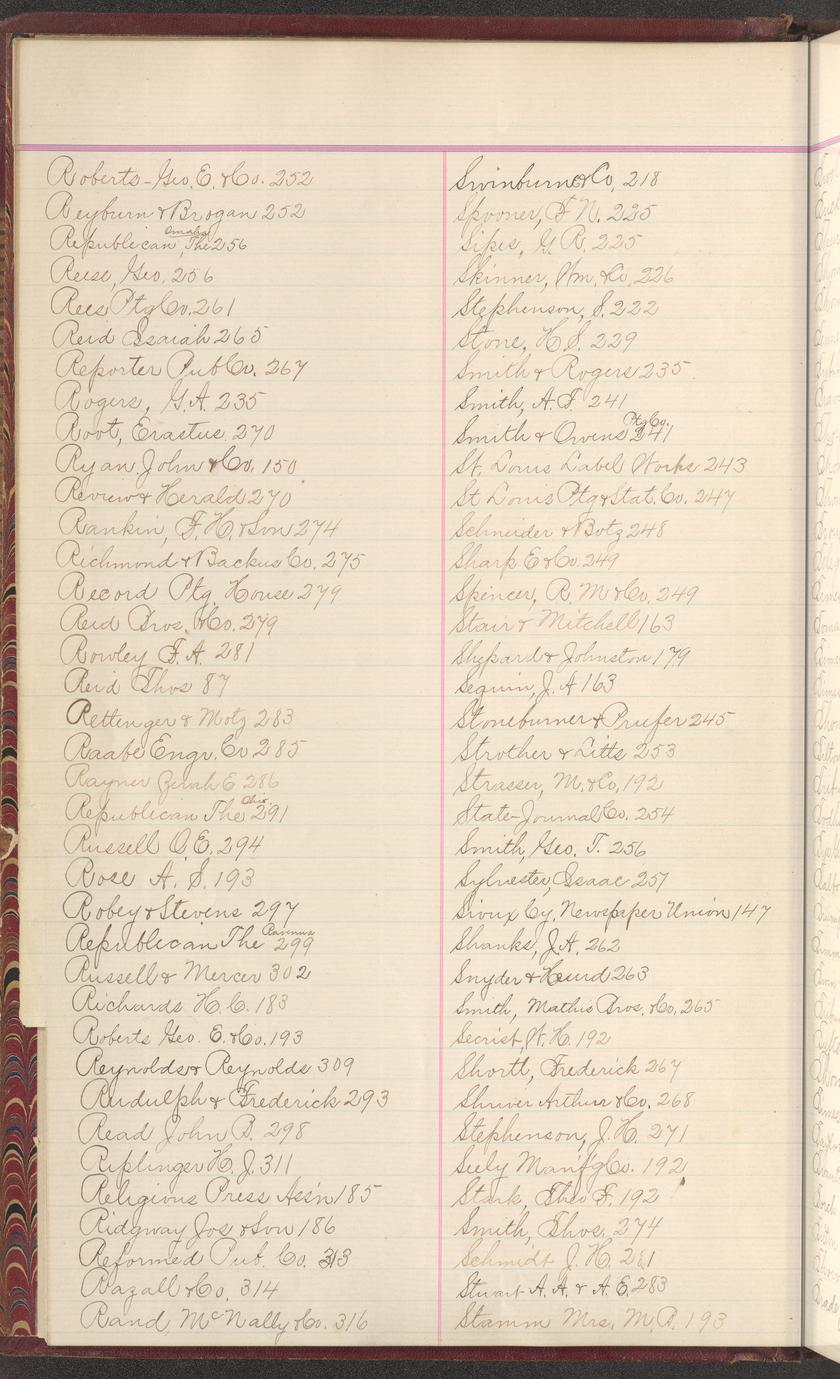 Roberts-Geo. E. & Co. 252
Reyburn & Brogan 252
Republican, The Omaha 256
Reese, Geo. 256
Rees Ptg Co. 261
Reid Isaiah 265
Reporter Pub Co. 267
Rogers, G. A. 235
Root, Erastus. 270
Ryan John & Co. 150
Review & Herald 270
Rankin, F. H. & Son 274
Richmond & Backus Co. 275
Record Ptg. House 279
Reid Bros. & Co. 279
Rowley F. A. 281
Reid Thos 87
Rettinger & Motz 283
Raabe Engr. Co 285
Rayner E 286
Republican The Ohio 291
Russell O. E. 294
Rose A. S. 193
Robey & Stevens 297
Republican The Ravenna 299
Russell & Mercer 302
Richards H. C. 183
Roberts Geo. E. & Co. 193
Reynolds & Reynolds 309
Rudulph & Frederick 293
Read John B. 298
Riplinger H. J. 311
Religious Press Ass'n 185
Ridgway Jos & Son 186
Reformed Pub. Co. 313
Ragall & Co. 314
Rand, McNally & Co. 316
Swinburne & Co, 218
Spooner, F N. 225
Sipes, G. R. 225
Skinner, Wm. & Co, 226
Stephenson, S. 222
Stone, H. S. 229
Smith & Rogers 235
Smith, A. F. 241
Smith & Owens Ptg Co. 241
St. Louis Label Works 243
St Louis Ptg & Stat. Co. 247
Schneider & Botz 248
Sharp E & Co. 249
Spencer, R. M & Co. 249
Stair & Mitchell 163
Shepard & Johnston 179
Seguin, J. A 163
Stoneburner & Prufer 245
Strother & Litts 253
Strasser, M. & Co, 192
State-Journal Co. 254
Smith, Geo. T. 256
Sylvester, Isaac 257
Sioux Cy. Newspaper Union 147
Shanks, J. A. 262
Snyder & Heurd 263
Smith, Mathis Bros. & Co. 265
Secrist, W. H. 192
Shortt, Frederick 267
Shriver Arthur & Co. 268
Stephenson, J. H. 271
Seely Manf'g Co. 192
Stark, Theo F. 192
Smith, Thos. 274
Schmidt J. H. 281
Stuart A. A. & A. E. 283
Stamm Mrs. M. B. 193